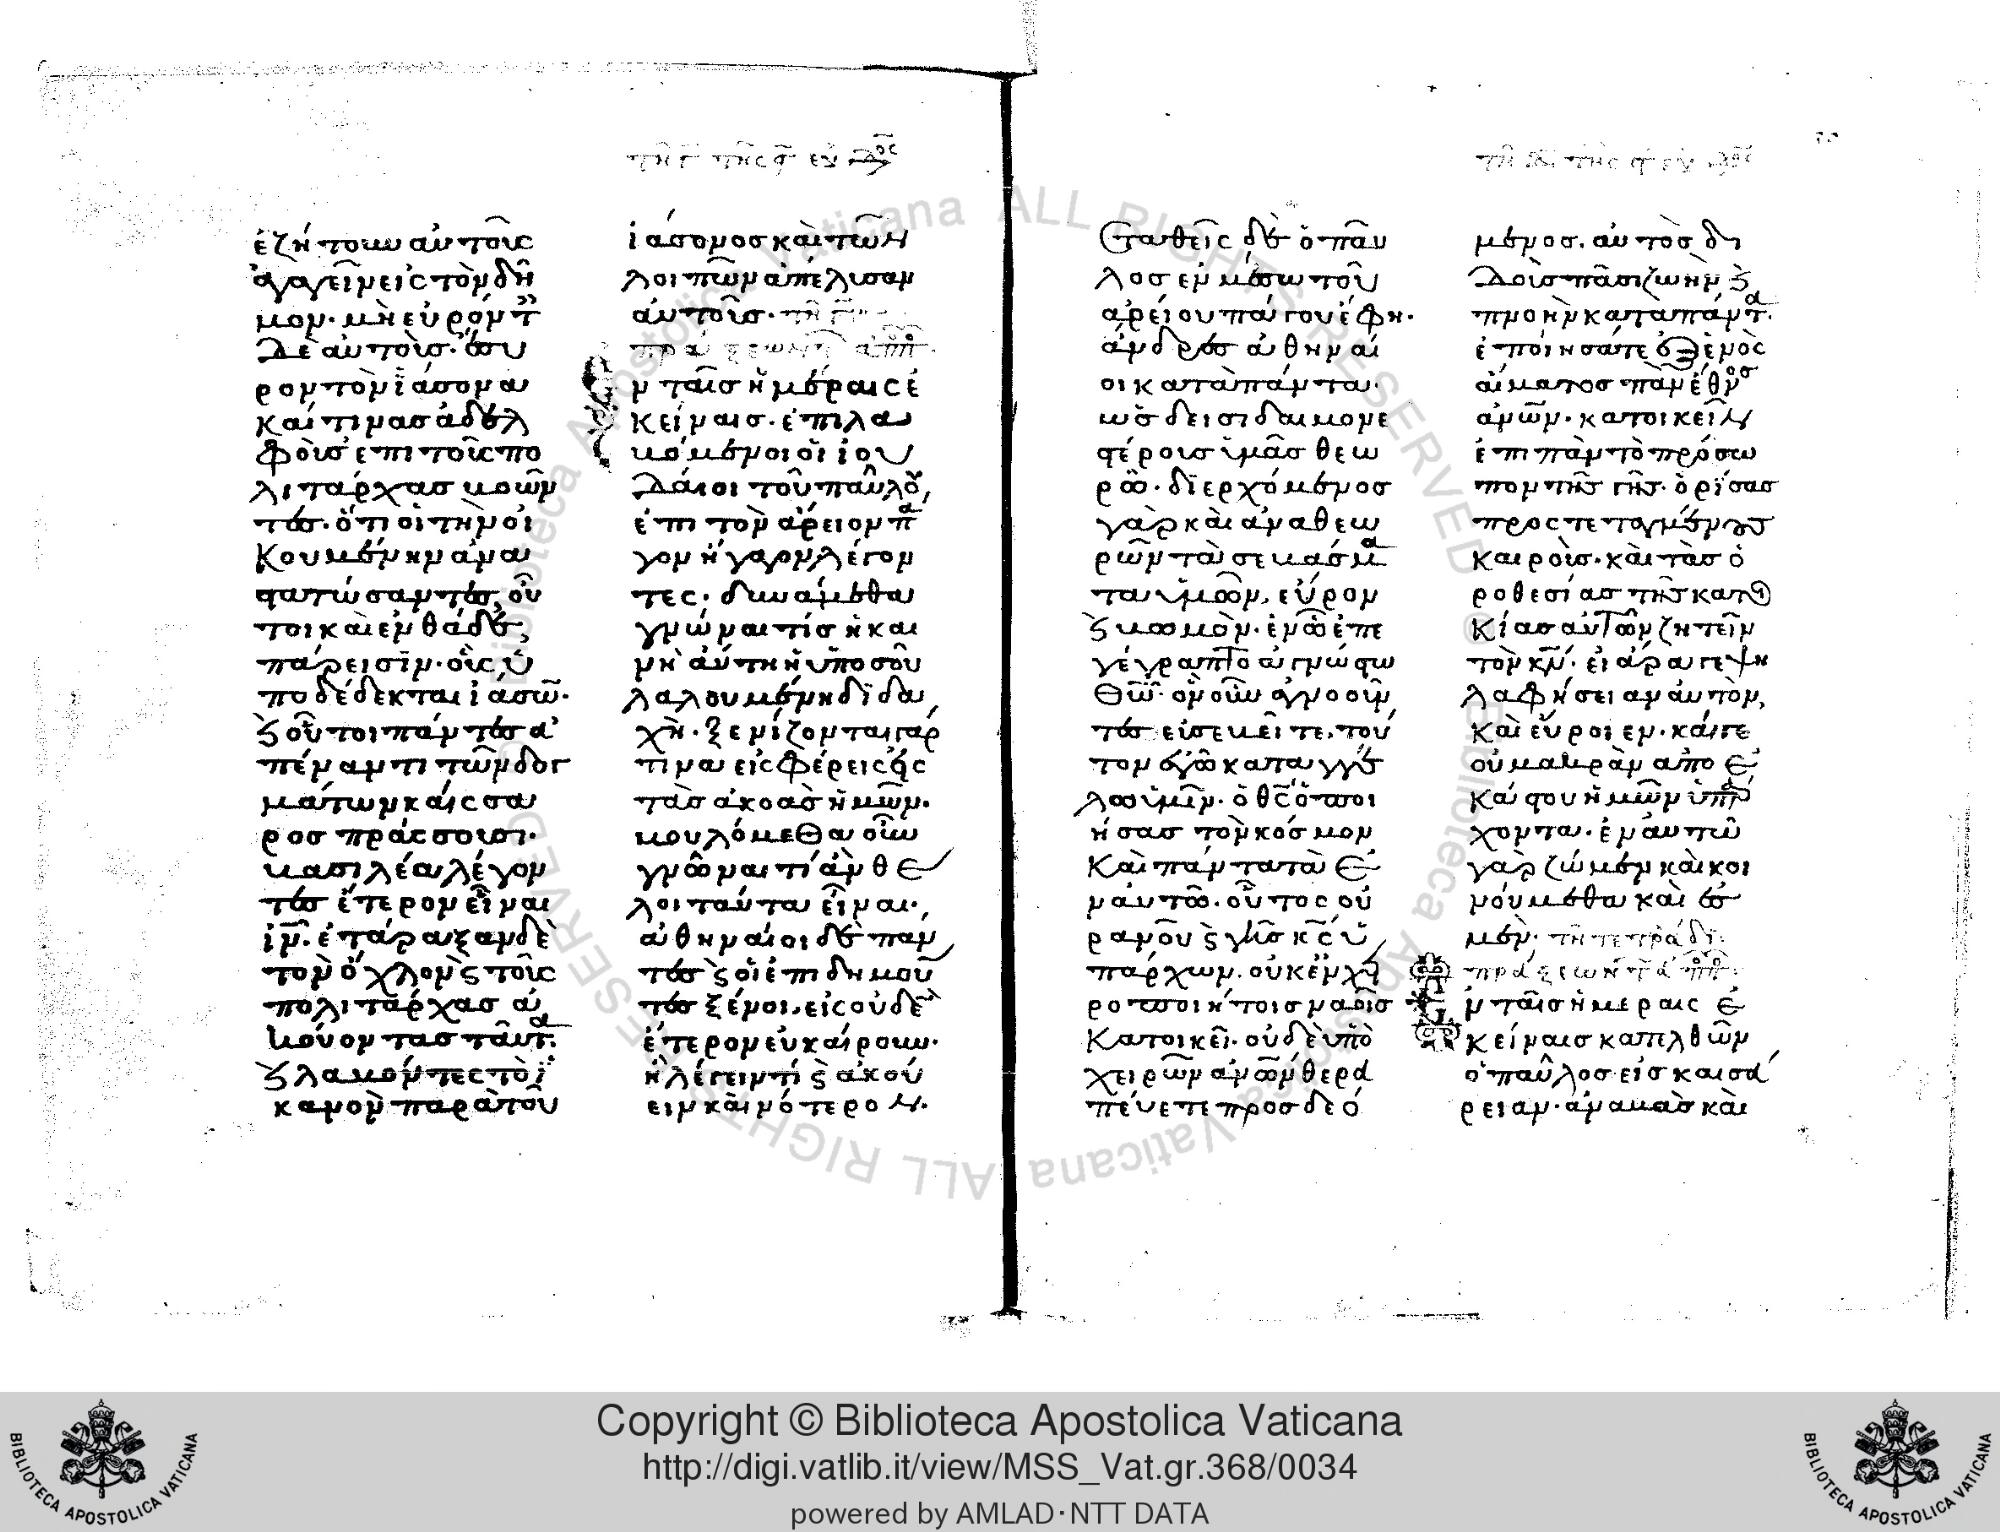 τῆ γ τῆς ϛ ἑβδο
ἐζήτουν αὐτοὺς
ἀγαγεῖν εἰς τὸν δῆ
μον· μὴ εὑρόντ
δὲ αὐτοὺς· ἔσυ
ρον τὸν ϊάσονα
καί τινας ἀδελ
φοὺς ἐπὶ τοὺς πο
λιτάρχας βοῶν
τες· ὅτι οἱ τὴν οἰ
κουμένην ἀνα
στατώσαντες, οὗ
τοι καὶ ἐνθάδε,
πάρεισϊν· οὓς ὑ
ποδέδεκται ἰάσων·
ϗ οὗτοι πάντες ἀ
πέναντι τῶν δογ
μάτων καίσα
ρος πράσσουσι·
βασιλέα λέγον
τες ἕτερον εἶναι
ἰν· ἐτάραξαν δὲ
τὸν ὄχλον ϗ τοὺς
πολιτάρχας ἀ
κούοντας ταῦτα·
ϗ λαβόντες τὸ ἱ
κανὸν παρὰ τοῦ
ἰάσονος καὶ τῶν
λοιπῶν ἀπέλυσαν
αὐτούς· τῆ γ
πράξεων τ απο
Εν ταῖς ἡμέραις ἐ
κείναις· ἐπιλα
βόμενοι οἱ ἰου
δαῖοι τοῦ παύλου,
ἐπὶ τὸν ἄρειον πα
γον ἤγαγον λέγον
τες· δυνάμεθα
γνῶναι τίς ἡ και
νὴ αὕτη ἡ ὑπὸ σοῦ
λαλουμένη διδα
χὴ· ξενίζοντα γάρ
τινα εἰσφέρεις εἰς
τὰς ἀκοὰς ἡμῶν·
βουλόμεθα οὖν
γνῶναι τί ἂν θέ
λοι ταῦτα εἶναι·
ἀθηναῖοι δὲ πάν
τες ϗ οἱ ἐπιδημοῦν
τες ξένοι, εἰς οὐδὲν
ἕτερον εὐκαίρουν·
ἢ λέγειν τί ϗ ἀκού
ειν καινότερον·
τῆ δ τῆς ϛ ἑβδο
Σταθεὶς δὲ ὁ παῦ
λος ἐν μέσω τοῦ
ἀρείου πάγου ἔφη·
ἄνδρες ἀθηναῖ
οι κατὰ πάντα·
ὡς δεισιδαιμονε
στέρους ὑμᾶς θεω
ρῶ· διερχόμενος
γὰρ καὶ ἀναθεω
ρῶν τὰ σεβάσμα
τα ὑμῶν, εὗρον
ϗ βωμὸν· ἐν ᾧ ἐπε
γέγραπτο ἀγνώστω
θῶ· ὃν οὖν ἀγνοοῦν
τες εὐσεβεῖτε, τοῦ
τον ἐγὼ καταγγέλ
λω ὑμῖν· ὁ θς ὁ ποι
ήσας τὸν κόσμον
καὶ πάντα τὰ ἐ
ν αὐτῶ· οὗτος οὐ
ρανοῦ ϗ γῆς κς ὑ
πάρχων· οὐκ ἐν χει
ροποιήτοις ναοῖς
κατοικεῖ· οὐδὲ ὑπὸ
χειρῶν ἀνων θερα
πεύετε προσδεό
μενος· αὐτὸς δι
δοὺς πᾶσι ζωὴν ϗ
πνοὴν κατὰ πάντα·
ἐποίησά τε ἐξ ἑνὸς
αἵματος πᾶν ἔθνος
ἀνων· κατοικεῖν
ἐπὶ πᾶν τὸ πρόσω
πον τῆς γῆς· ὁρίσας
προστεταγμένους
καιρούς· καὶ τὰς ὁ
ροθεσίας τῆς κατοι
κίας αὐτῶν ζητεῖν
τὸν κν· εἰ ἄρα γε ψη
λαφήσειαν αὐτὸν,
καὶ εὕροιεν· καί γε
οὐ μακρὰν ἀπὸ ἑ
κάστου ἡμῶν ὑπάρ
χοντα· ἐν αὐτῶ
γὰρ ζῶμεν καὶ κι
νούμεθα καὶ ἐσ
μέν· τῆ τετράδι
πράξεων τ απο
Εν ταῖς ἡμεραις ἐ
κείναις κατελθὼν
ὁ παῦλος εἰς καισά
ρειαν· ἀναβὰς καὶ
Copyright © Biblioteca Apostolica Vaticana
http://digi.vatlib.it/view/MSS_Vat.gr.368/0034
powered by AMLAD·NTT DATA
BIBLIOTECA APOSTOLICA VATICANA
BIBLIOTECA APOSTOLICA VATICANA
Biblioteca Apostolica Vaticana ALL RIGHTS RESERVED © Biblioteca Apostolica Vaticana ALL RIGHTS RESERVED ©